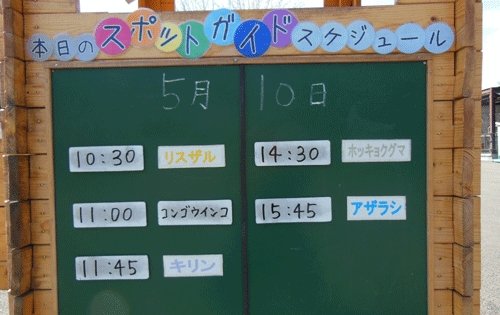 本日のスポットガイドスケジュール
5月 10日
10:30 リスザル
11:00 コンゴウインコ
11:45 キリン
14:30 ホッキョクグマ
15:45 アザラシ